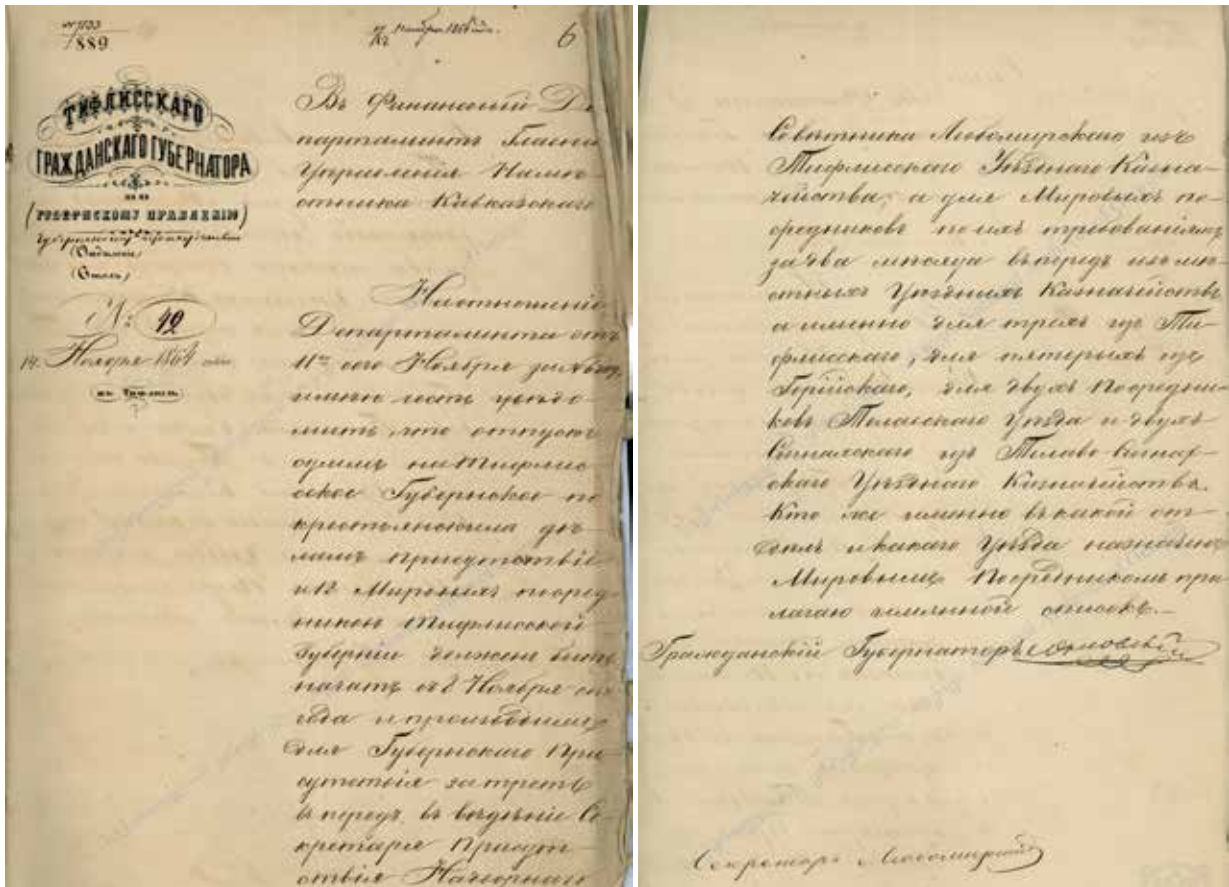 № 7133
889
6
ТИФЛИССКАГО
ГРАЖДАНСКАГО ГУБЕРНАТОРА
ПО
(ГУБЕРНСКОМУ ПРАВЛЕНІЮ)
(Отдѣленіе)
(Столъ)
№ 42
14 Ноября 1864 года
въ Тифлисѣ
Въ Финансовый Де
партаментъ Главна
Управленія Намѣ
стника Кавказскаго
На отношеніе
Департамента отъ
11го сего Ноября за №
имѣю честь увѣдо
мить, что отпускъ
суммъ на Тифлис
ское Губернское по
крестьянскимъ дѣ
ламъ присутствіе
и 12 Мировыхъ посред
никовъ Тифлисской
Губерніи долженъ быть
начатъ съ 8 Ноября сего
года и производимъ
для Губернскаго При
сутствія за треть
въ передъ въ вѣдѣніе Се
кретаря Присут
ствія Надворнаго
Совѣтника Любомирскаго изъ
Тифлисскаго Уѣзднаго Казна-
чейства; а для Мировыхъ по-
средниковъ по ихъ требованіямъ
за два мѣсяца впередъ изъ мѣ-
стныхъ Уѣздныхъ Казначействъ
а именно для трехъ изъ Ти-
флисскаго, для пятерыхъ изъ
Горійскаго, для двухъ Посредни-
ковъ Телавскаго Уѣзда и двухъ
Сигнахскаго изъ Телаво-Сигнах-
скаго Уѣзднаго Казначейства.
Кто же именно въ какой от-
дѣлъ и какаго Уѣзда назначенъ
Мировымъ Посредникомъ при
лагаю имянной списокъ.—
Гражданскій Губернаторъ Орловскій
Секретарь Любомирскій